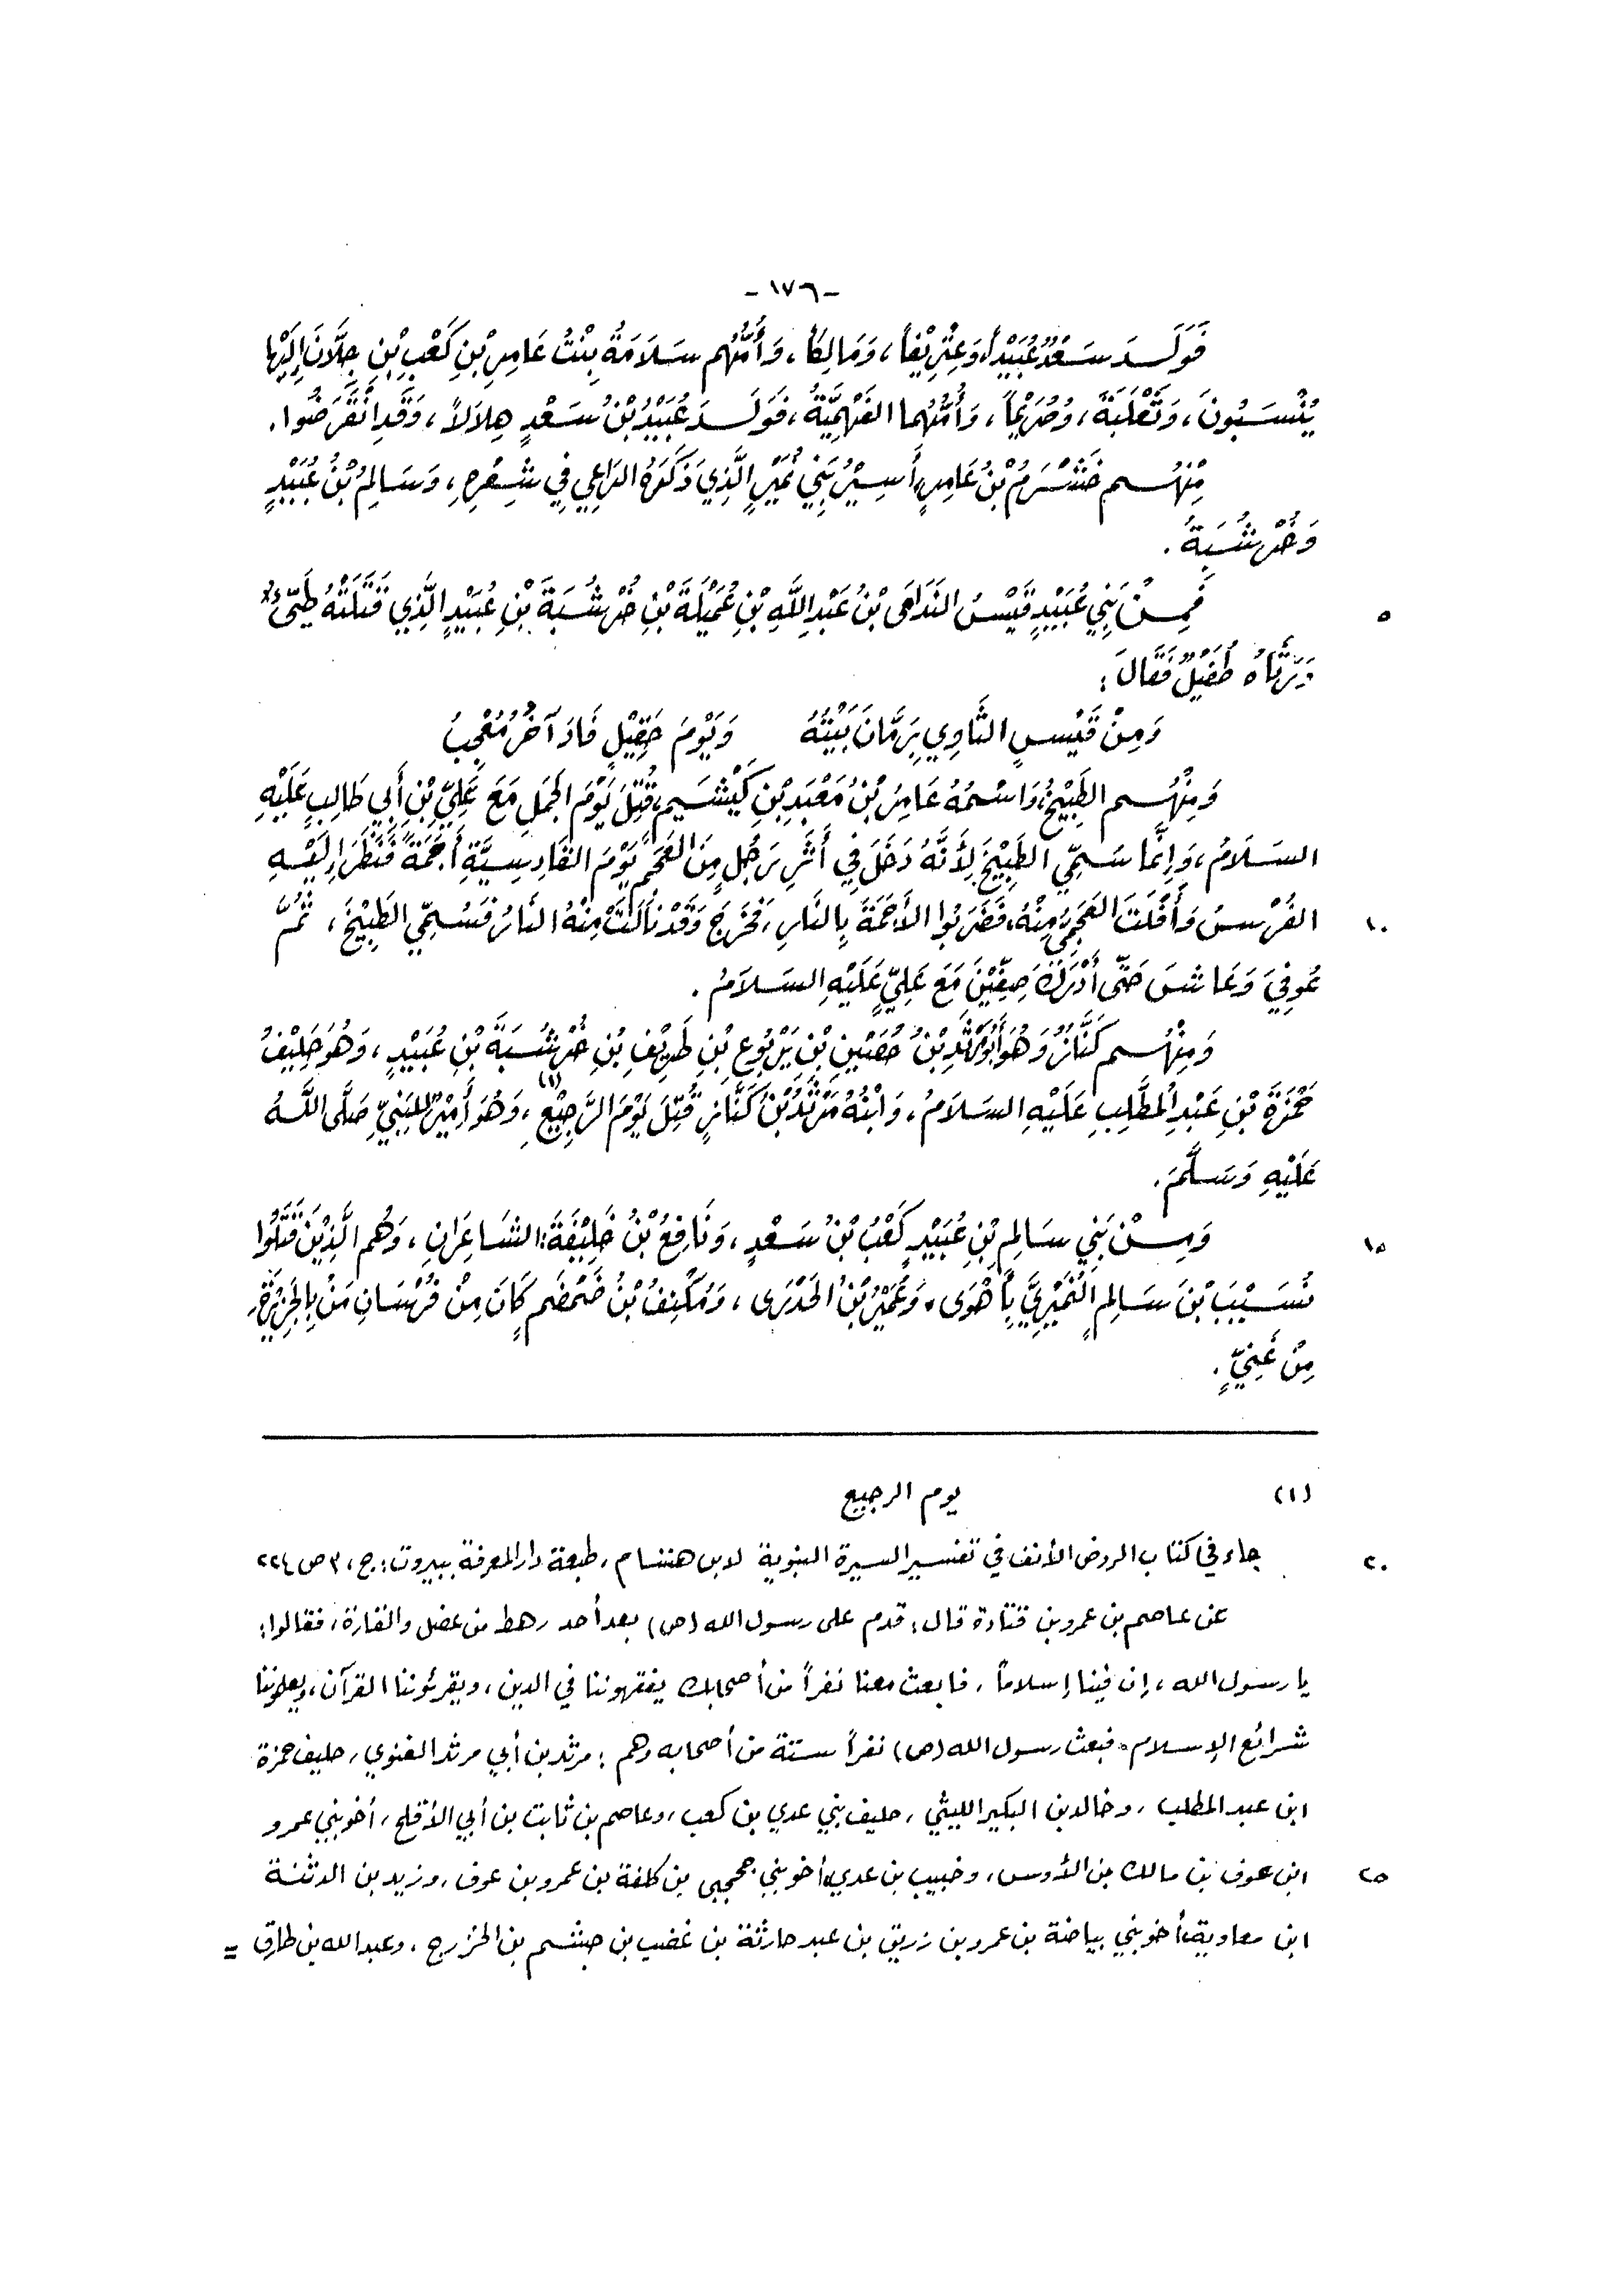 -١٧٦-
فَوَلَدَ سَعْدٌ عُبَيْداً، وَعِتْرِيْفاً، وَمَالِكاً، وَأُمُّهُم سَلَامَةُ بِنْتُ عَامِرِ بْنِ كَعْبِ بْنِ جِلَّانَ إِلَيْها
يُنْسَبُونَ، وَثَعْلَبَةَ، وَصُرَيْماً، وَأُمُّهُما الفَهْمِيَّةُ، فَوَلَدَ عُبَيْدُ بْنُ سَعْدٍ هِلَالاً، وَقَدِ انْقَرَضُوا.
مِنْهُم خَشْرَمُ بْنُ عَامِرٍ، أَسِيْرُ بَنِي نُمَيْرٍ الَّذِي ذَكَرَهُ الرَاعِي فِي شِعْرِهِ، وَسَالِمُ بْنُ عُبَيْدٍ
وَخُرْشُبَةُ.
٥ فَمِنْ بَنِي عُبَيْدٍ قَيْسُ النَدَامَى بْنُ عَبْدِ اللَّهِ بْنِ عُمَيْلَةَ بْنِ خُرْشُبَةَ بْنِ عُبَيْدٍ الَّذِي قَتَلَتْهُ طَيِّئٌ
وَرَثَاهُ طُفَيْلٌ فَقَالَ:
وَمِنْ قَيْسٍ الثَّاوِي بِرَمَّانَ بَيْتُهُ وَيَوْمَ حَقِيْلٍ فَادَ آخَرُ مُعْجِبُ
وَمِنْهُم الطَبِيْخُ، وَاسْمُهُ عَامِرُ بْنُ مَعْبَدِ بْنِ كَيْشَمٍ، قُتِلَ يَوْمَ الجَمَلِ مَعَ عَلِيِّ بْنِ أَبِي طَالِبٍ عَلَيْهِ
السَلَامُ، وَإِنَّما سُمِّي الطَبِيْخَ لِأَنَّهُ دَخَلَ فِي أَثَرِ رَجُلٍ مِنَ العَجَمِ يَوْمَ القَادِسِيَّةِ أَجَمَةً فَنَظَرَ إِلَيْهِ
١٠ الفُرْسُ وَأَفْلَتَ العَجَمِيُّ مِنْهُ، فَضَرَبُوا الأَجَمَةَ بِالنَارِ، فَخَرَجَ وَقَدْ نَالَتْ مِنْهُ النَارُ فَسُمِّي الطَبِيْخَ، ثُمَّ
عُوفِيَ وَعَاشَ حَتَّى أَدْرَكَ صِفِّيْنَ مَعَ عَلِيٍّ عَلَيْهِ السَلَامُ.
وَمِنْهُم كَنَّازٌ وَهُوَ أَبُو مَرْثَدِ بْنُ حُصَيْنِ بْنِ يَرْبُوعِ بْنِ طَرِيْفِ بْنِ خُرْشُبَةَ بْنِ عُبَيْدٍ، وَهُوَ حَلِيْفُ
حَمْزَةَ بْنِ عَبْدِ المُطَّلِبِ عَلَيْهِ السَلَامُ، وَابْنُهُ مَرْثَدُ بْنُ كَنَّازٍ قُتِلَ يَوْمَ الرَّجِيْعِ(١)، وَهُوَ أَمِيْرٌ لِلنَبِيِّ صَلَّى اللَّهُ
عَلَيْهِ وَسَلَّمَ.
١٥ وَمِنْ بَنِي سَالِمِ بْنِ عُبَيْدٍ كَعْبُ بْنُ سَعْدٍ، وَنَافِعُ بْنُ خَلِيْفَةَ: الشَاعِرَانِ، وَهُم الَّذِيْنَ قَتَلُوا
نُسَيْبَ بْنَ سَالِمٍ النُمَيْرِيَّ بِأَهْوَى، وَعُمَيْرُ بْنُ الحَدْرَى، وَمُكْنِفُ بْنُ ضَمْضَمٍ كَانَ مِنْ فُرْسَانِ مَنْ بِالجَزِيْرَةِ
مِنْ غَنِيٍّ.
(١) يوم الرجيع
٢٠ جاء في كتاب الروض الأنف في تفسير السيرة النبوية لابن هشام، طبعة دار المعرفة ببيروت: ج، ٣ ص ٢٢٤
عن عاصم بن عمرو بن قتادة قال: قدم على رسول الله (ص) بعد أحد رهط من عضل والقارة، فقالوا:
يا رسول الله، إن فينا إسلاماً، فابعث معنا نفراً من أصحابك يفقهوننا في الدين، ويقرئوننا القرآن، ويعلموننا
شرائع الإسلام، فبعث رسول الله (ص) نفراً ستة من أصحابه وهم: مرثد بن أبي مرثد الغنوي، حليف حمزة
ابن عبد المطلب، وخالد بن البكير الليثي، حليف بني عدي بن كعب، وعاصم بن ثابت بن أبي الأقلح، أخو بني عمرو
٢٥ ابن عوف بن مالك بن الأوس، وخبيب بن عدي، أخو بني جحجبى بن كلفة بن عمرو بن عوف، وزيد بن الدثنة
ابن معاوية، أخو بني بياضة بن عمرو بن زريق بن عبد حارثة بن غضب بن جشم بن الخزرج، وعبد الله بن طارق =